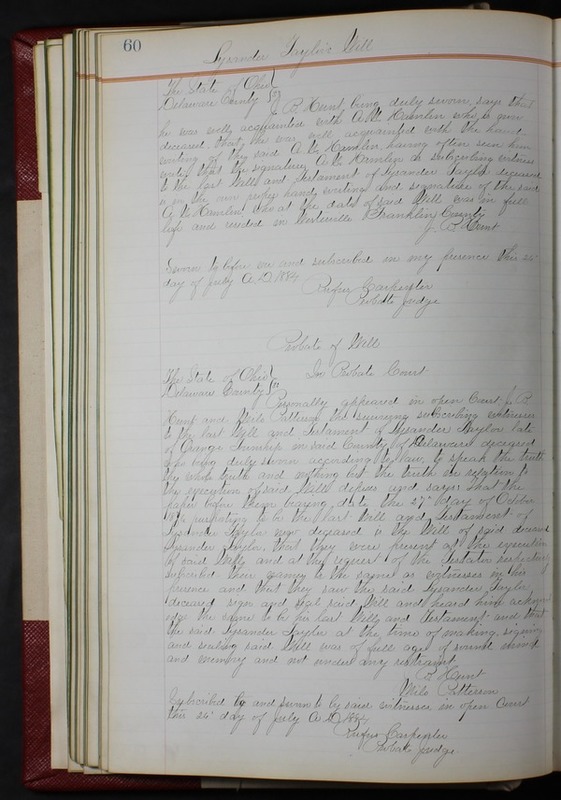 60
Lysander Taylor's Will
The State of Ohio
Delaware County } ss J. B. Hunt, being duly sworn, says that
he was well acquainted with A. W. Hamlin who is now
deceased that he was well acquainted with the hand
writing of the said A. W. Hamlin having often seen him
write that the signature A. W. Hamlin as subscribing witness
to the last Will and Testament of Lysander Taylor deceased
is in the own proper hand writing and signature of the said
A. W. Hamlin who at the date of said Will was in full
life and resided in Westerville Franklin County
J. B. Hunt
Sworn to before me and subscribed in my presence this 24
day of July A.D. 1884
Rufus Carpenter
Probate Judge
Probate of Will
The State of Ohio
Delaware County } ss In Probate Court
Personally appeared in open Court J. B.
Hunt and Milo Patterson the surviving subscribing witnesses
to the last Will and Testament of Lysander Taylor late
of Orange Township in said County of Delaware deceased
who being duly sworn according to law, to speak the truth
the whole truth and nothing but the truth in relation to
the execution of said Will depose and say: that the
paper before them bearing date the 27" day of October
purporting to be the last Will and Testament of
Lysander Taylor now deceased is the Will of said deceased
Lysander Taylor, that they were present at the execution
of said Will and at the request of the testator respectively
subscribed their names to the same as witnesses in his
presence and that they saw the said Lysander Taylor
deceased sign and seal said Will and heard him acknowl
edge the same to be his last Will and Testament and that
the said Lysander Taylor at the time of making, signing
and sealing said Will was of full age of sound mind
and memory and not under any restraint
J. B. Hunt
Milo Patterson
Subscribed by and sworn to by said witnesses in open Court
this 24" day of July A.D. 1884
Rufus Carpenter
Probate Judge